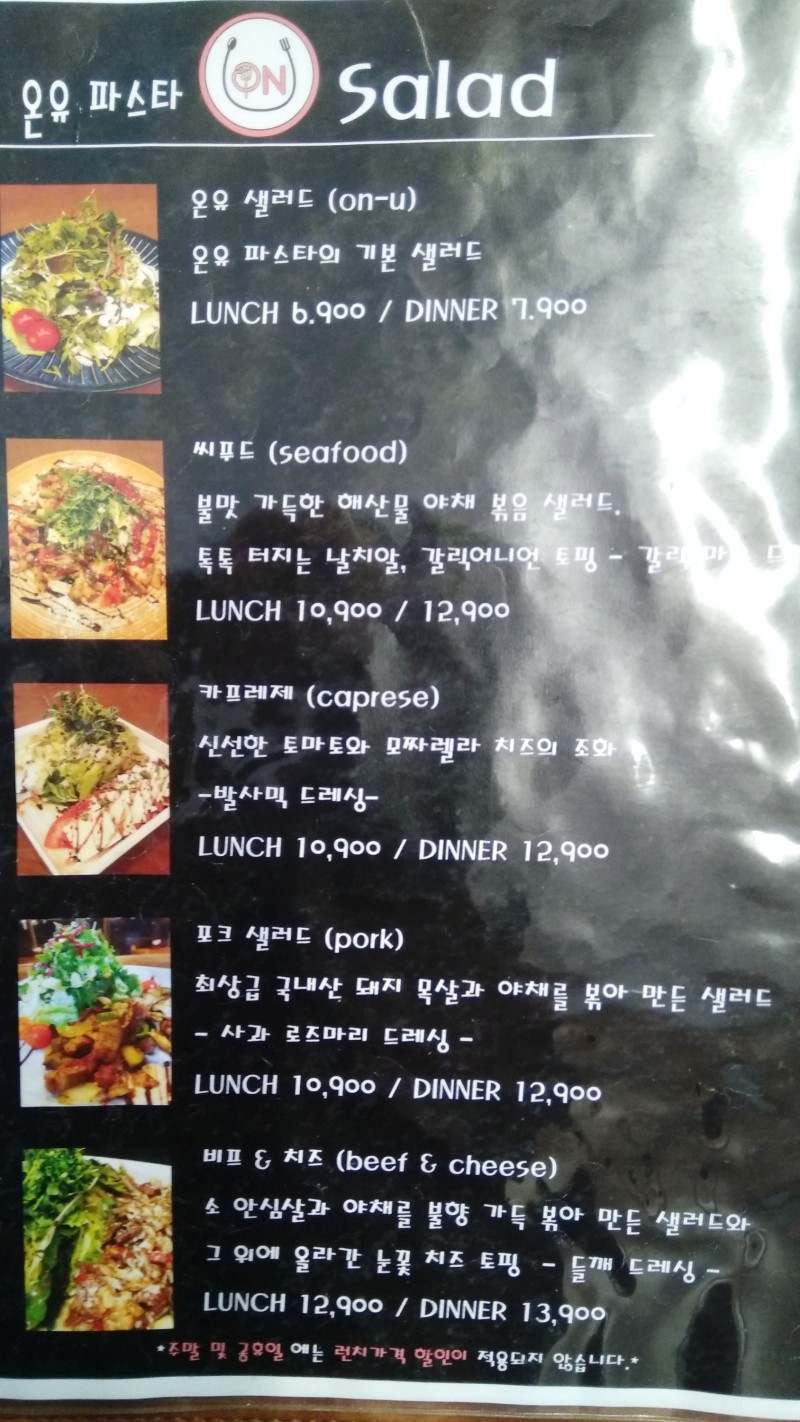 온유 파스타 ON Salad
온유 샐러드 (on-u)
온유 파스타의 기본 샐러드
LUNCH 6.900 / DINNER 7.900
씨푸드 (seafood)
불맛 가득한 해산물 야채 볶음 샐러드.
톡톡 터지는 날치알, 갈릭어니언 토핑 -
LUNCH 10,900 / 12,900
카프레제 (caprese)
신선한 토마토와 모짜렐라 치즈의 조화
-발사믹 드레싱-
LUNCH 10,900 / DINNER 12,900
포크 샐러드 (pork)
최상급 국내산 돼지 목살과 야채를 볶아 만든 샐러드
- 사과 로즈마리 드레싱 -
LUNCH 10,900 / DINNER 12,900
비프 & 치즈 (beef & cheese)
소 안심살과 야채를 불향 가득 볶아 만든 샐러드와
그 위에 올라간 눈꽃 치즈 토핑 - 들깨 드레싱 -
LUNCH 12,900 / DINNER 13,900
*주말 및 공휴일 에는 런치가격 할인이 적용되지 않습니다.*